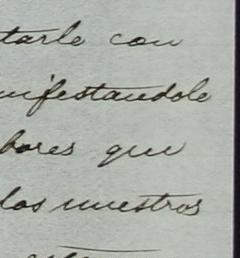 tarle con
nifestandole
bores que
los nuestros